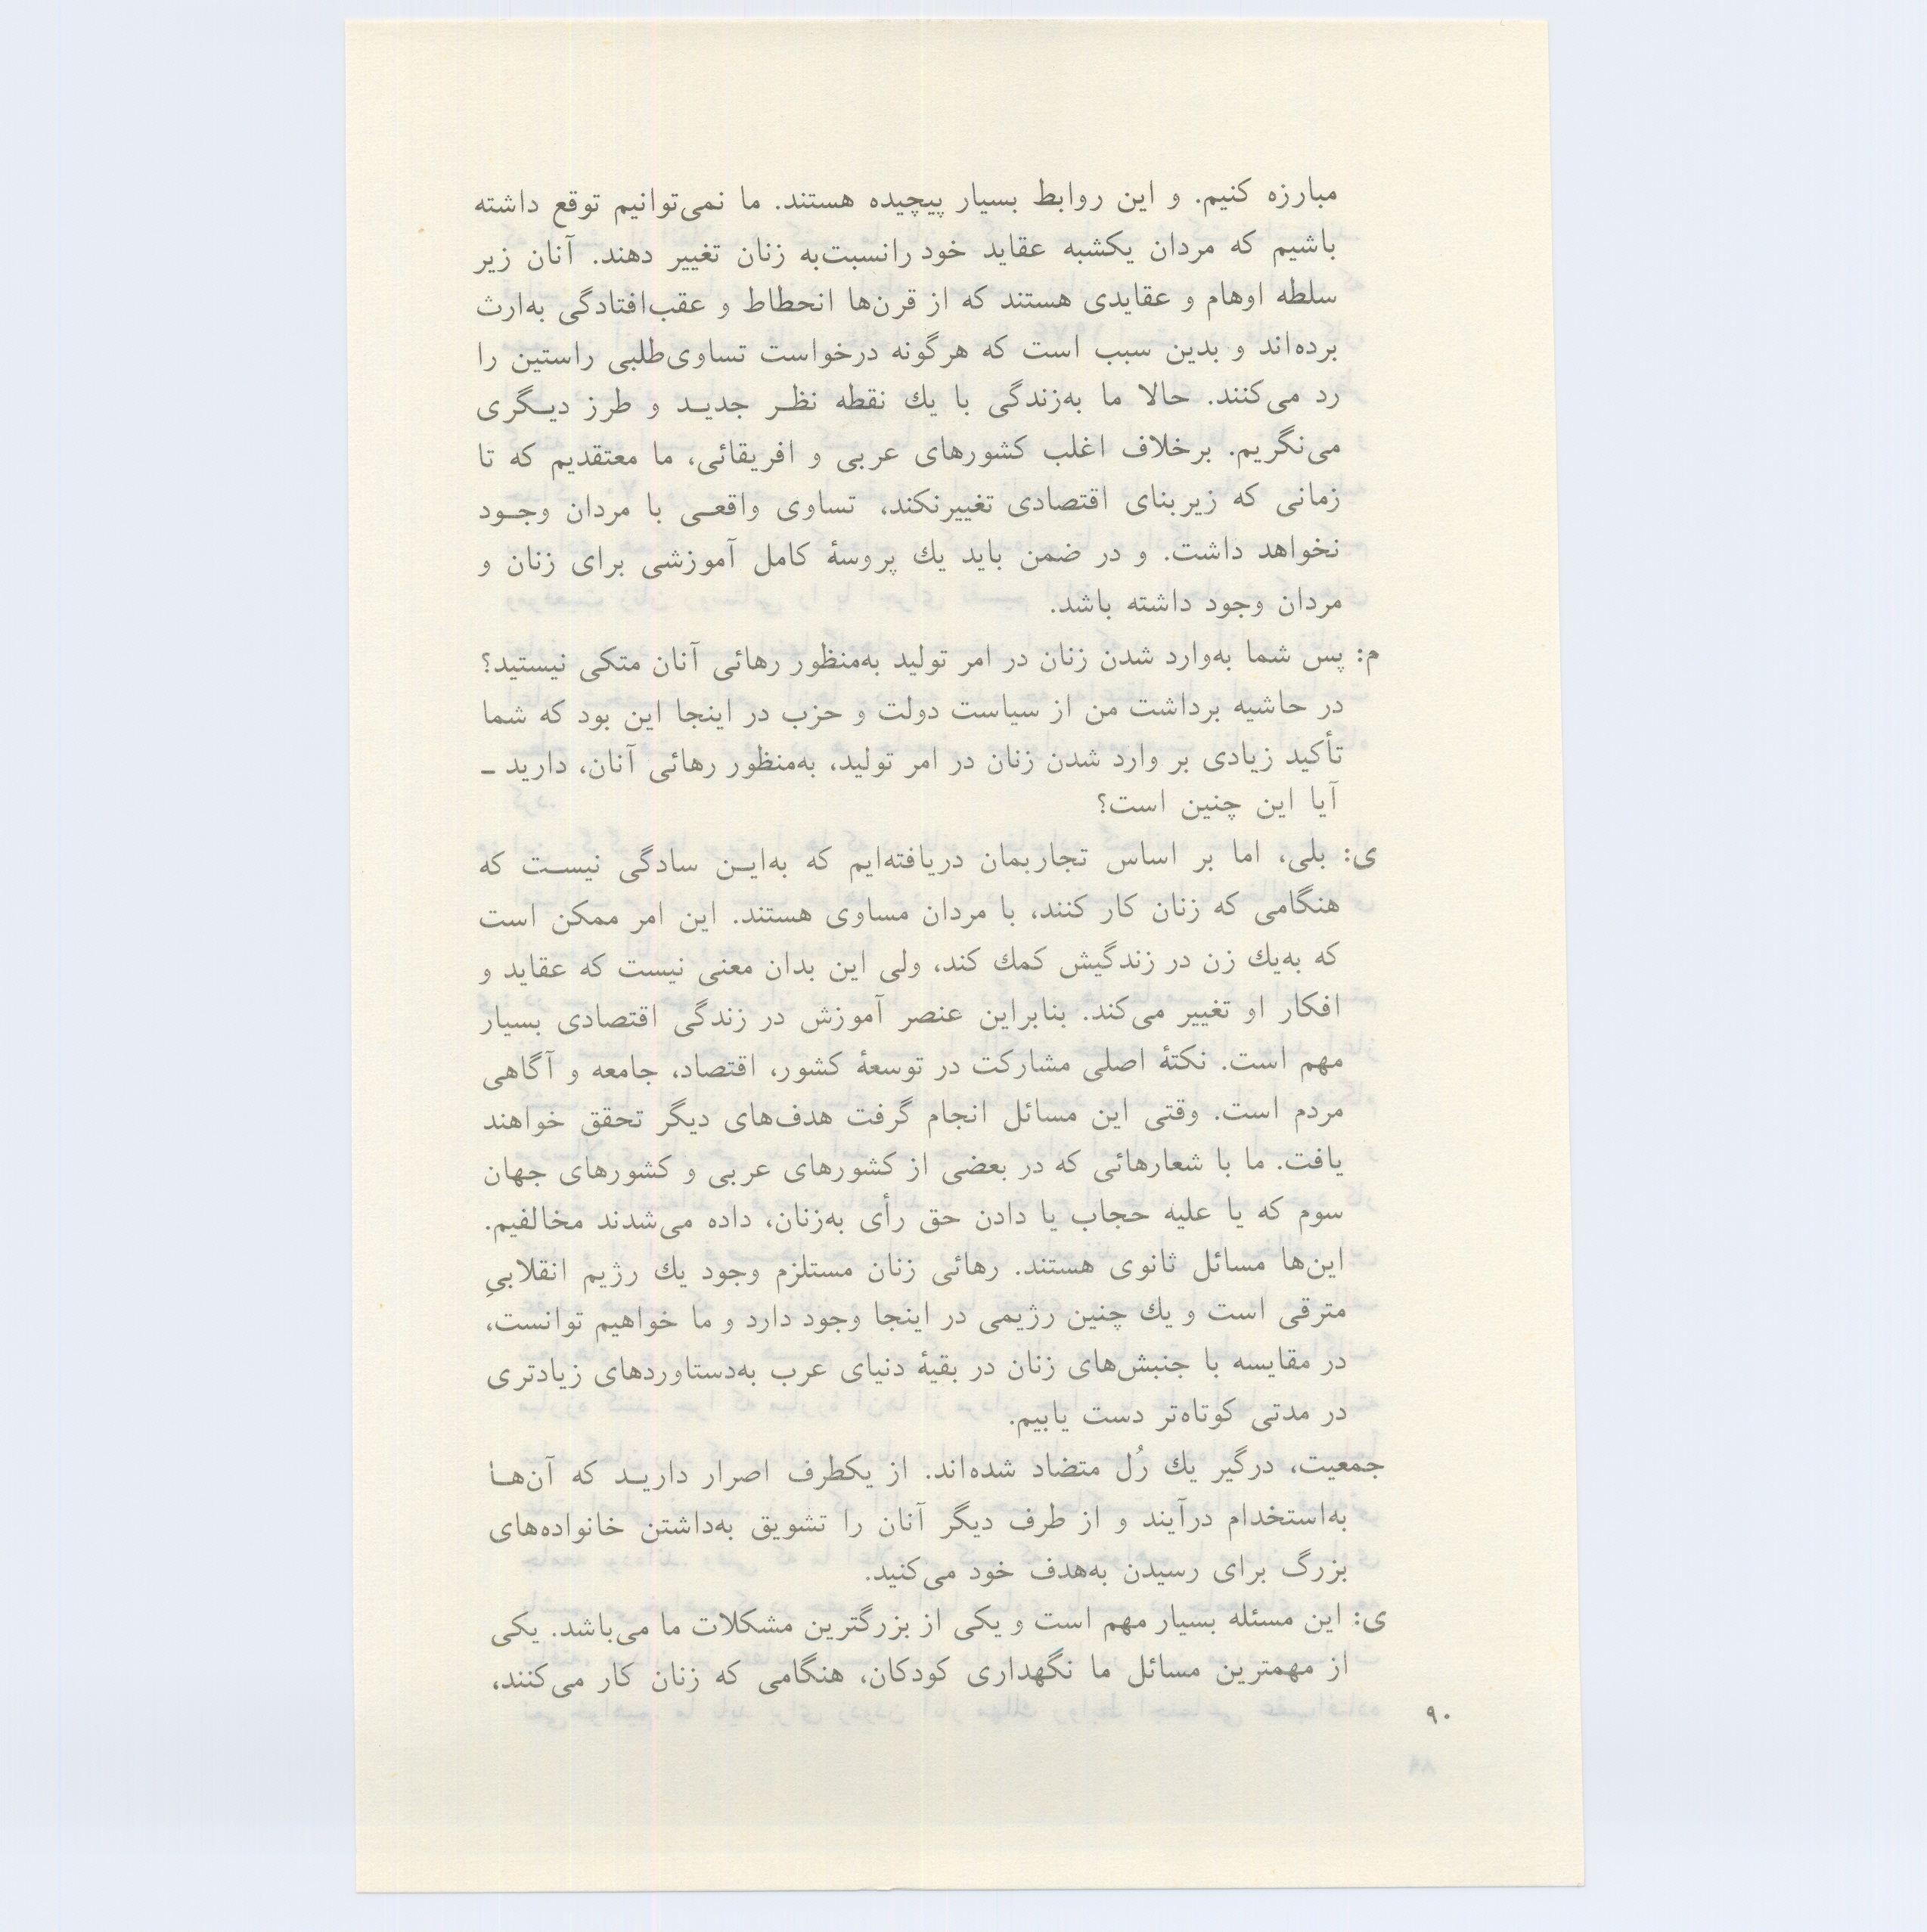 مبارزه کنیم. و این روابط بسیار پیچیده هستند. ما نمی‌توانیم توقع داشته
باشیم که مردان یکشبه عقاید خود رانسبت‌به زنان تغییر دهند. آنان زیر
سلطه اوهام و عقایدی هستند که از قرن‌ها انحطاط و عقب‌افتادگی به‌ارث
برده‌اند و بدین سبب است که هرگونه درخواست تساوی‌طلبی راستین را
رد می‌کنند. حالا ما به‌زندگی با یك نقطه نظـر جدیـد و طرز دیـگری
می‌نگریم. برخلاف اغلب کشورهای عربی و افریقائی، ما معتقدیم که تا
زمانی که زیربنای اقتصادی تغییرنکند، تساوی واقعـی با مردان وجـود
نخواهد داشت. و در ضمن باید یك پروسهٔ کامل آموزشی برای زنان و
مردان وجود داشته باشد.
م: پس شما به‌وارد شدن زنان در امر تولید به‌منظور رهائی آنان متکی نیستید؟
در حاشیه برداشت من از سیاست دولت و حزب در اینجا این بود که شما
تأکید زیادی بر وارد شدن زنان در امر تولید، به‌منظور رهائی آنان، دارید ـ
آیا این چنین است؟
ی: بلی، اما بر اساس تجاربمان دریافته‌ایم که به‌ایـن سادگی نیسـت که
هنگامی که زنان کار کنند، با مردان مساوی هستند. این امر ممکن است
که به‌یك زن در زندگیش کمك کند، ولی این بدان معنی نیست که عقاید و
افکار او تغییر می‌کند. بنابراین عنصر آموزش در زندگی اقتصادی بسیار
مهم است. نکتهٔ اصلی مشارکت در توسعهٔ کشور، اقتصاد، جامعه و آگاهی
مردم است. وقتی این مسائل انجام گرفت هدف‌های دیگر تحقق خواهند
یافت. ما با شعارهائی که در بعضی از کشورهای عربی و کشورهای جهان
سوم که یا علیه حجاب یا دادن حق رأی به‌زنان، داده می‌شدند مخالفیم.
این‌ها مسائل ثانوی هستند. رهائی زنان مستلزم وجود یك رژیم انقلابیِ
مترقی است و یك چنین رژیمی در اینجا وجود دارد و ما خواهیم توانست،
در مقایسه با جنبش‌های زنان در بقیهٔ دنیای عرب به‌دستاوردهای زیادتری
در مدتی کوتاه‌تر دست یابیم.
جمعیت، درگیر یك رُل متضاد شده‌اند. از یکطرف اصرار داریـد که آن‌هـا
به‌استخدام درآیند و از طرف دیگر آنان را تشویق به‌داشتن خانواده‌های
بزرگ برای رسیدن به‌هدف خود می‌کنید.
ی: این مسئله بسیار مهم است و یکی از بزرگترین مشکلات ما می‌باشد. یکی
از مهمترین مسائل ما نگهداری کودکان، هنگامی که زنان کار می‌کنند،
۹۰